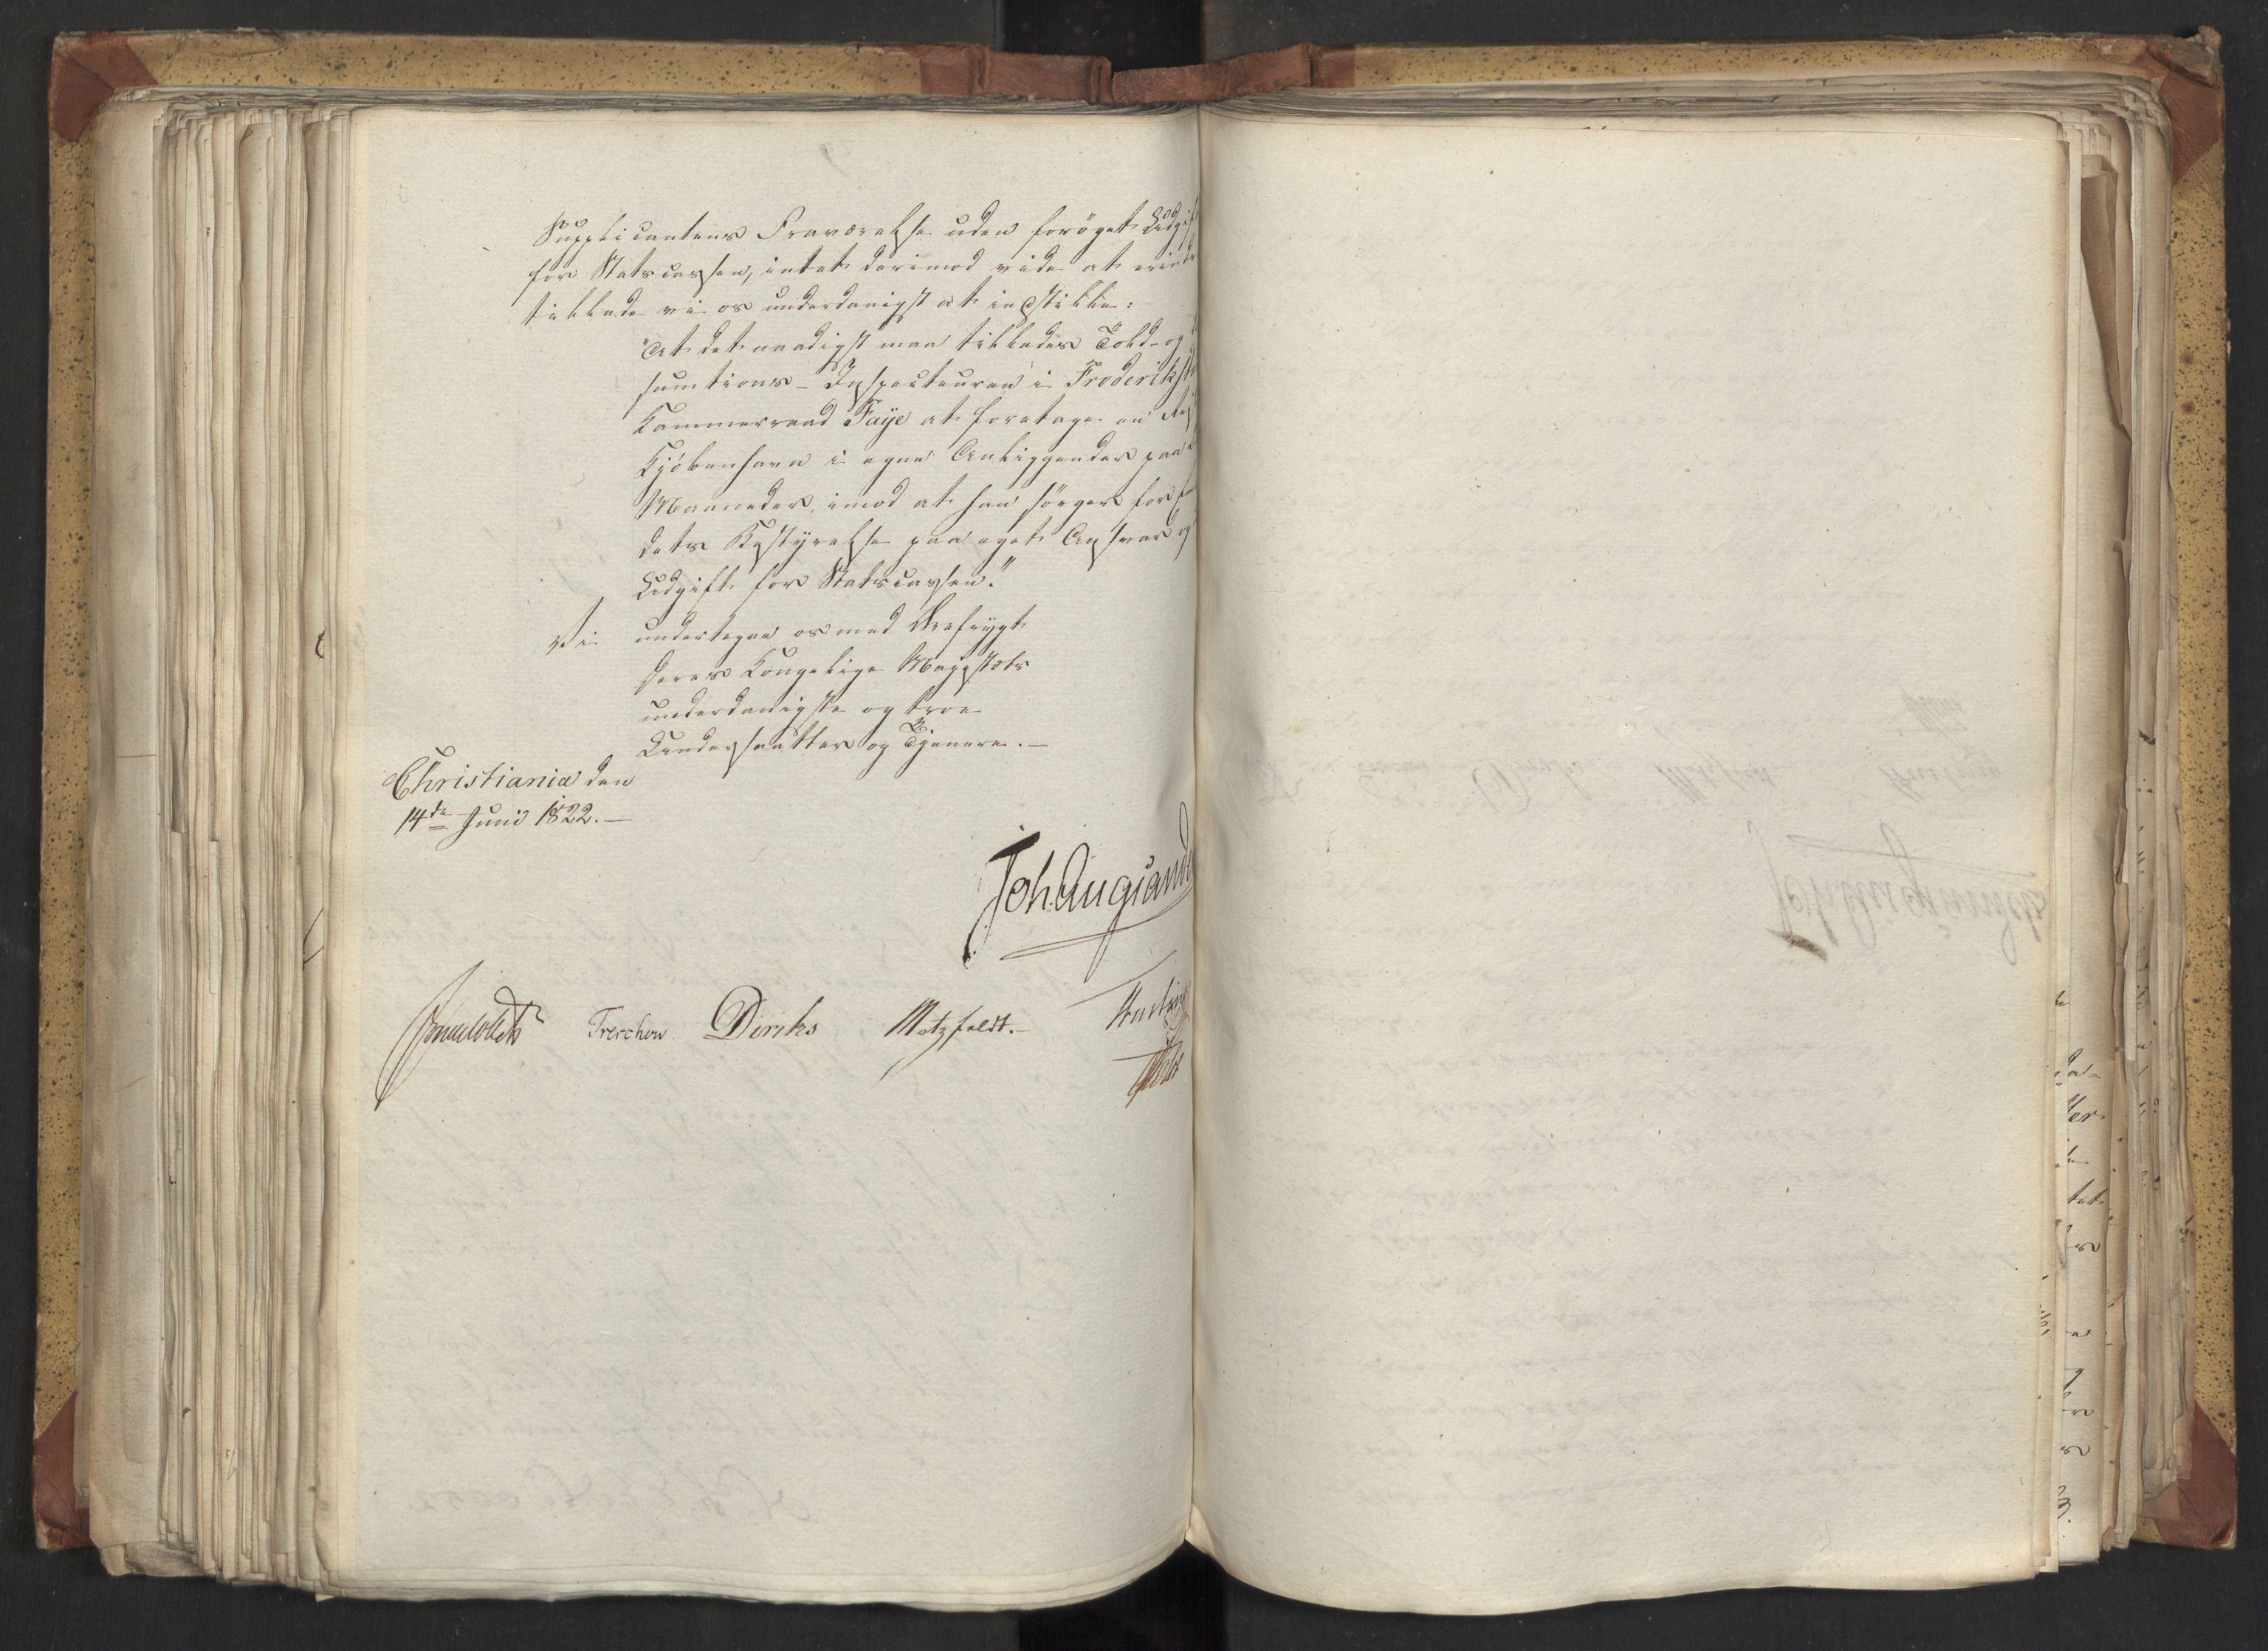 Supplicantens Fraværelse uden forøget Udgif
for Statscassen, intet derimod vide at erind
tillade vi os underdanigst at indstille:
"At det naadigst maa tillades Told- og
sumtions-Inspecteuren i Frederikst
Kammerraad Faÿe at foretage en Rej
Kjøbenhavn i egne Anliggender paa
Maaneder, imod at han sørger for
dets Bestÿrelse paa eget Ansvar og
Udgift for Statscassen."
Vi undertegne os med Ærefrÿgt
Deres Kongelige Majestæts
underdanigste og troe
Undersaatter og Tjenere.—
Christiania den
14de Juni 1822.—
Joh. Aug. Sande
Sommerhielm Treschow Diriks Motzfeldt.—
Holst